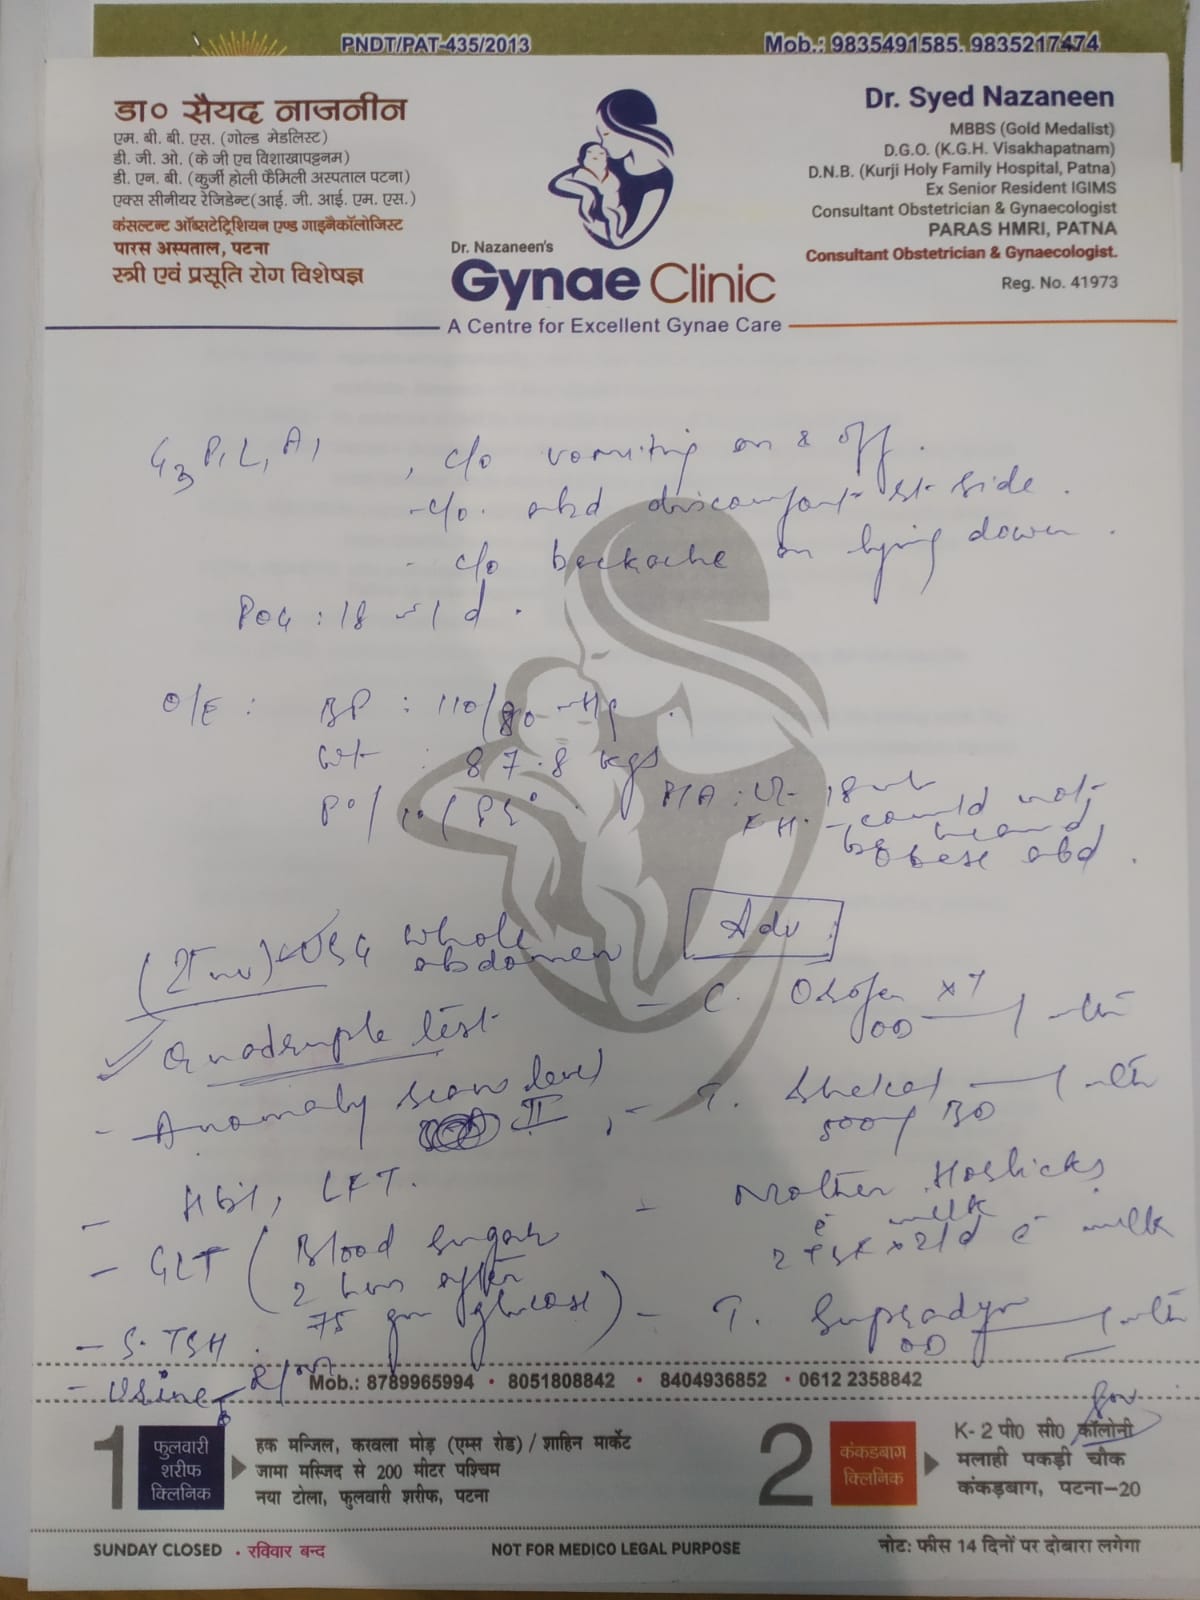 PNDT/PAT-435/2013
Mob.: 9835491585, 9835217474
डा० सैयद नाजनीन
एम. बी. बी. एस. (गोल्ड मेडलिस्ट)
डी. जी. ओ. (के जी एच विशाखापट्टनम)
डी. एन. बी. (कुर्जी होली फैमिली अस्पताल पटना)
एक्स सीनीयर रेजिडेन्ट(आई. जी. आई. एम. एस.)
कंसल्टेन्ट ऑब्सटेट्रिशियन एण्ड गाइनैकॉलोजिस्ट
पारस अस्पताल, पटना
स्त्री एवं प्रसूति रोग विशेषज्ञ
Dr. Nazaneen's
Gynae Clinic
A Centre for Excellent Gynae Care
Dr. Syed Nazaneen
MBBS (Gold Medalist)
D.G.O. (K.G.H. Visakhapatnam)
D.N.B. (Kurji Holy Family Hospital, Patna)
Ex Senior Resident IGIMS
Consultant Obstetrician & Gynaecologist
PARAS HMRI, PATNA
Consultant Obstetrician & Gynaecologist.
Reg. No. 41973
G3 P1 L1 A1, c/o vomiting on & off.
- c/o. abd discomfort side.
- c/o backache on lying down.
POG : 18 1 d.
O/E : BP : 110/80 mmHg.
Wt : 87.8 kgs
P/A : Ut- 18 wk
FH. - could not
be heard
obese abd.
USG whole
abdomen
Quadruple test
- Anomaly scan level
II
- Hb%, LFT.
- GLT (Blood sugar
2 hrs after
75 gm glucose)
- S. TSH.
- Urine R/M
Adv :
- C. Orofer x 7
OD
- T. Shelcal
500 BD
- Mother Horlicks
c̄ milk
2 TSF x 2/d c̄ milk
- T. Supradyn
OD
Mob.: 8789965994 • 8051808842 • 8404936852 • 0612 2358842
1 फुलवारी
शरीफ
क्लिनिक
हक मन्जिल, करवला मोड़ (एम्स रोड) / शाहिन मार्केट
जामा मस्जिद से 200 मीटर पश्चिम
नया टोला, फुलवारी शरीफ, पटना
2 कंकड़बाग
क्लिनिक
K- 2 पी० सी० कॉलोनी
मलाही पकड़ी चौक
कंकड़बाग, पटना-20
SUNDAY CLOSED • रविवार बन्द
NOT FOR MEDICO LEGAL PURPOSE
नोट: फीस 14 दिनों पर दोबारा लगेगा